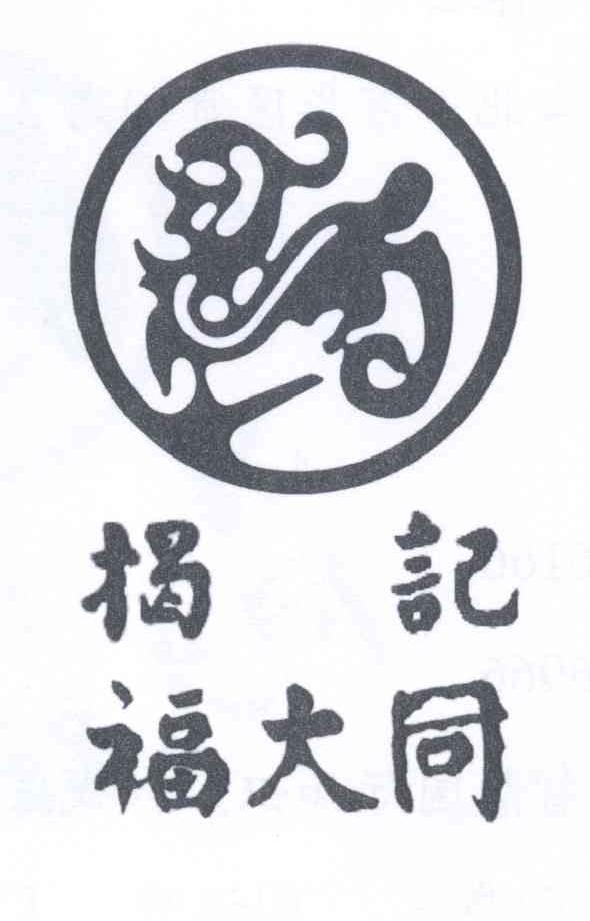 揭 記
福大同